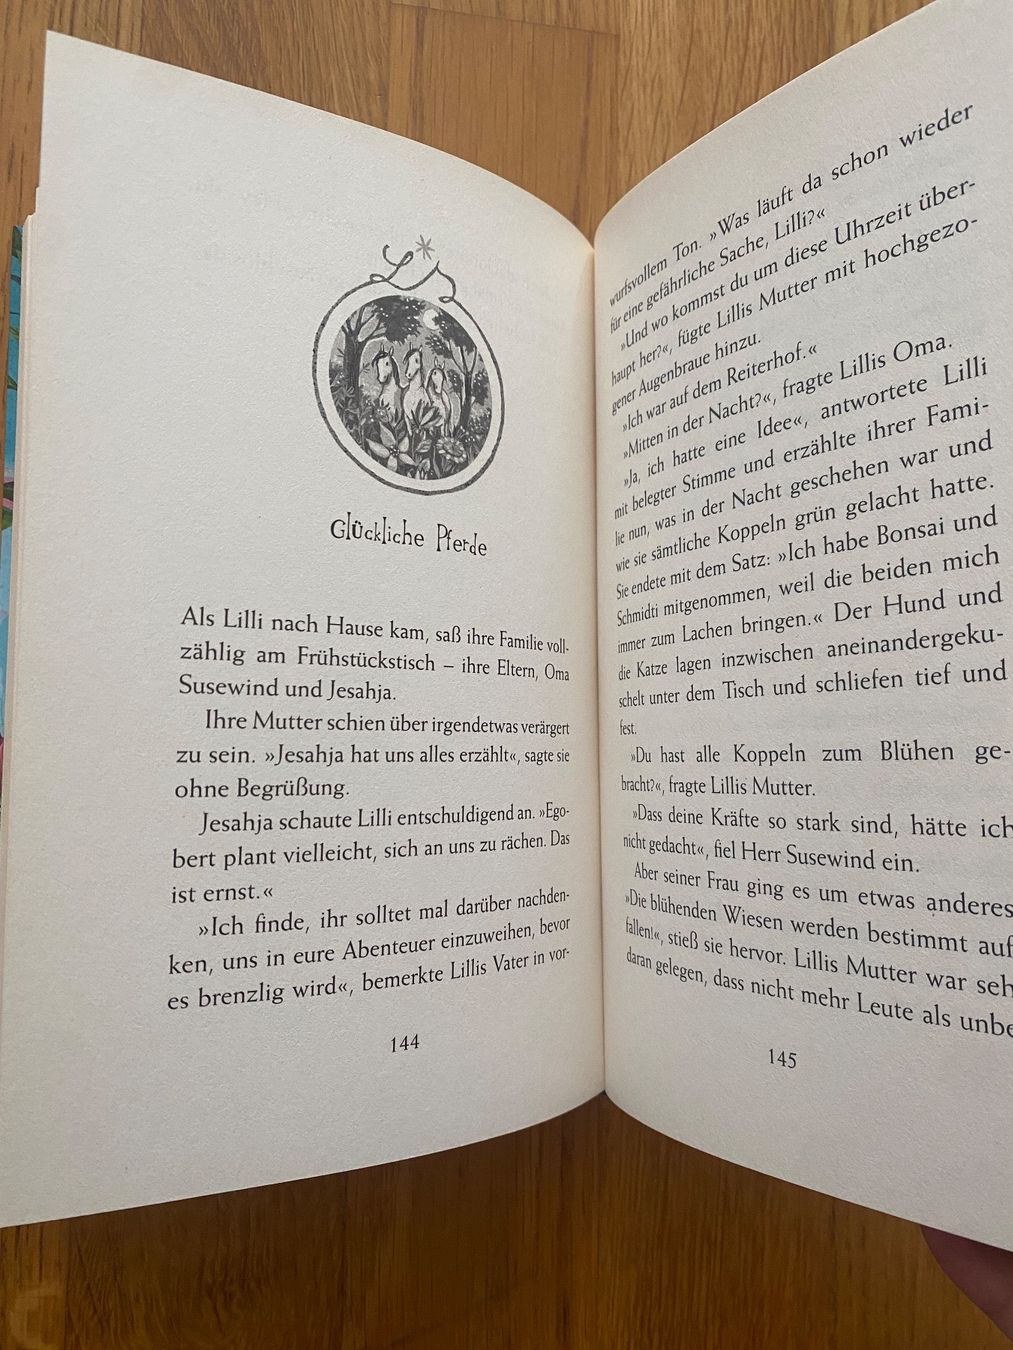 Glückliche Pferde
Als Lilli nach Hause kam, saß ihre Familie voll-
zählig am Frühstückstisch – ihre Eltern, Oma
Susewind und Jesahja.
Ihre Mutter schien über irgendetwas verärgert
zu sein. »Jesahja hat uns alles erzählt«, sagte sie
ohne Begrüßung.
Jesahja schaute Lilli entschuldigend an. »Ego-
bert plant vielleicht, sich an uns zu rächen. Das
ist ernst.«
»Ich finde, ihr solltet mal darüber nachden-
ken, uns in eure Abenteuer einzuweihen, bevor
es brenzlig wird«, bemerkte Lillis Vater in vor-
144
wurfsvollem Ton. »Was läuft da schon wieder
für eine gefährliche Sache, Lilli?«
»Und wo kommst du um diese Uhrzeit über-
haupt her?«, fügte Lillis Mutter mit hochgezo-
gener Augenbraue hinzu.
»Ich war auf dem Reiterhof.«
»Mitten in der Nacht?«, fragte Lillis Oma.
»Ja, ich hatte eine Idee«, antwortete Lilli
mit belegter Stimme und erzählte ihrer Fami-
lie nun, was in der Nacht geschehen war und
wie sie sämtliche Koppeln grün gelacht hatte.
Sie endete mit dem Satz: »Ich habe Bonsai und
Schmidti mitgenommen, weil die beiden mich
immer zum Lachen bringen.« Der Hund und
die Katze lagen inzwischen aneinandergeku-
schelt unter dem Tisch und schliefen tief und
fest.
»Du hast alle Koppeln zum Blühen ge-
bracht?«, fragte Lillis Mutter.
»Dass deine Kräfte so stark sind, hätte ich
nicht gedacht«, fiel Herr Susewind ein.
Aber seiner Frau ging es um etwas anderes.
»Die blühenden Wiesen werden bestimmt auf
fallen!«, stieß sie hervor. Lillis Mutter war seh
daran gelegen, dass nicht mehr Leute als unbe
145